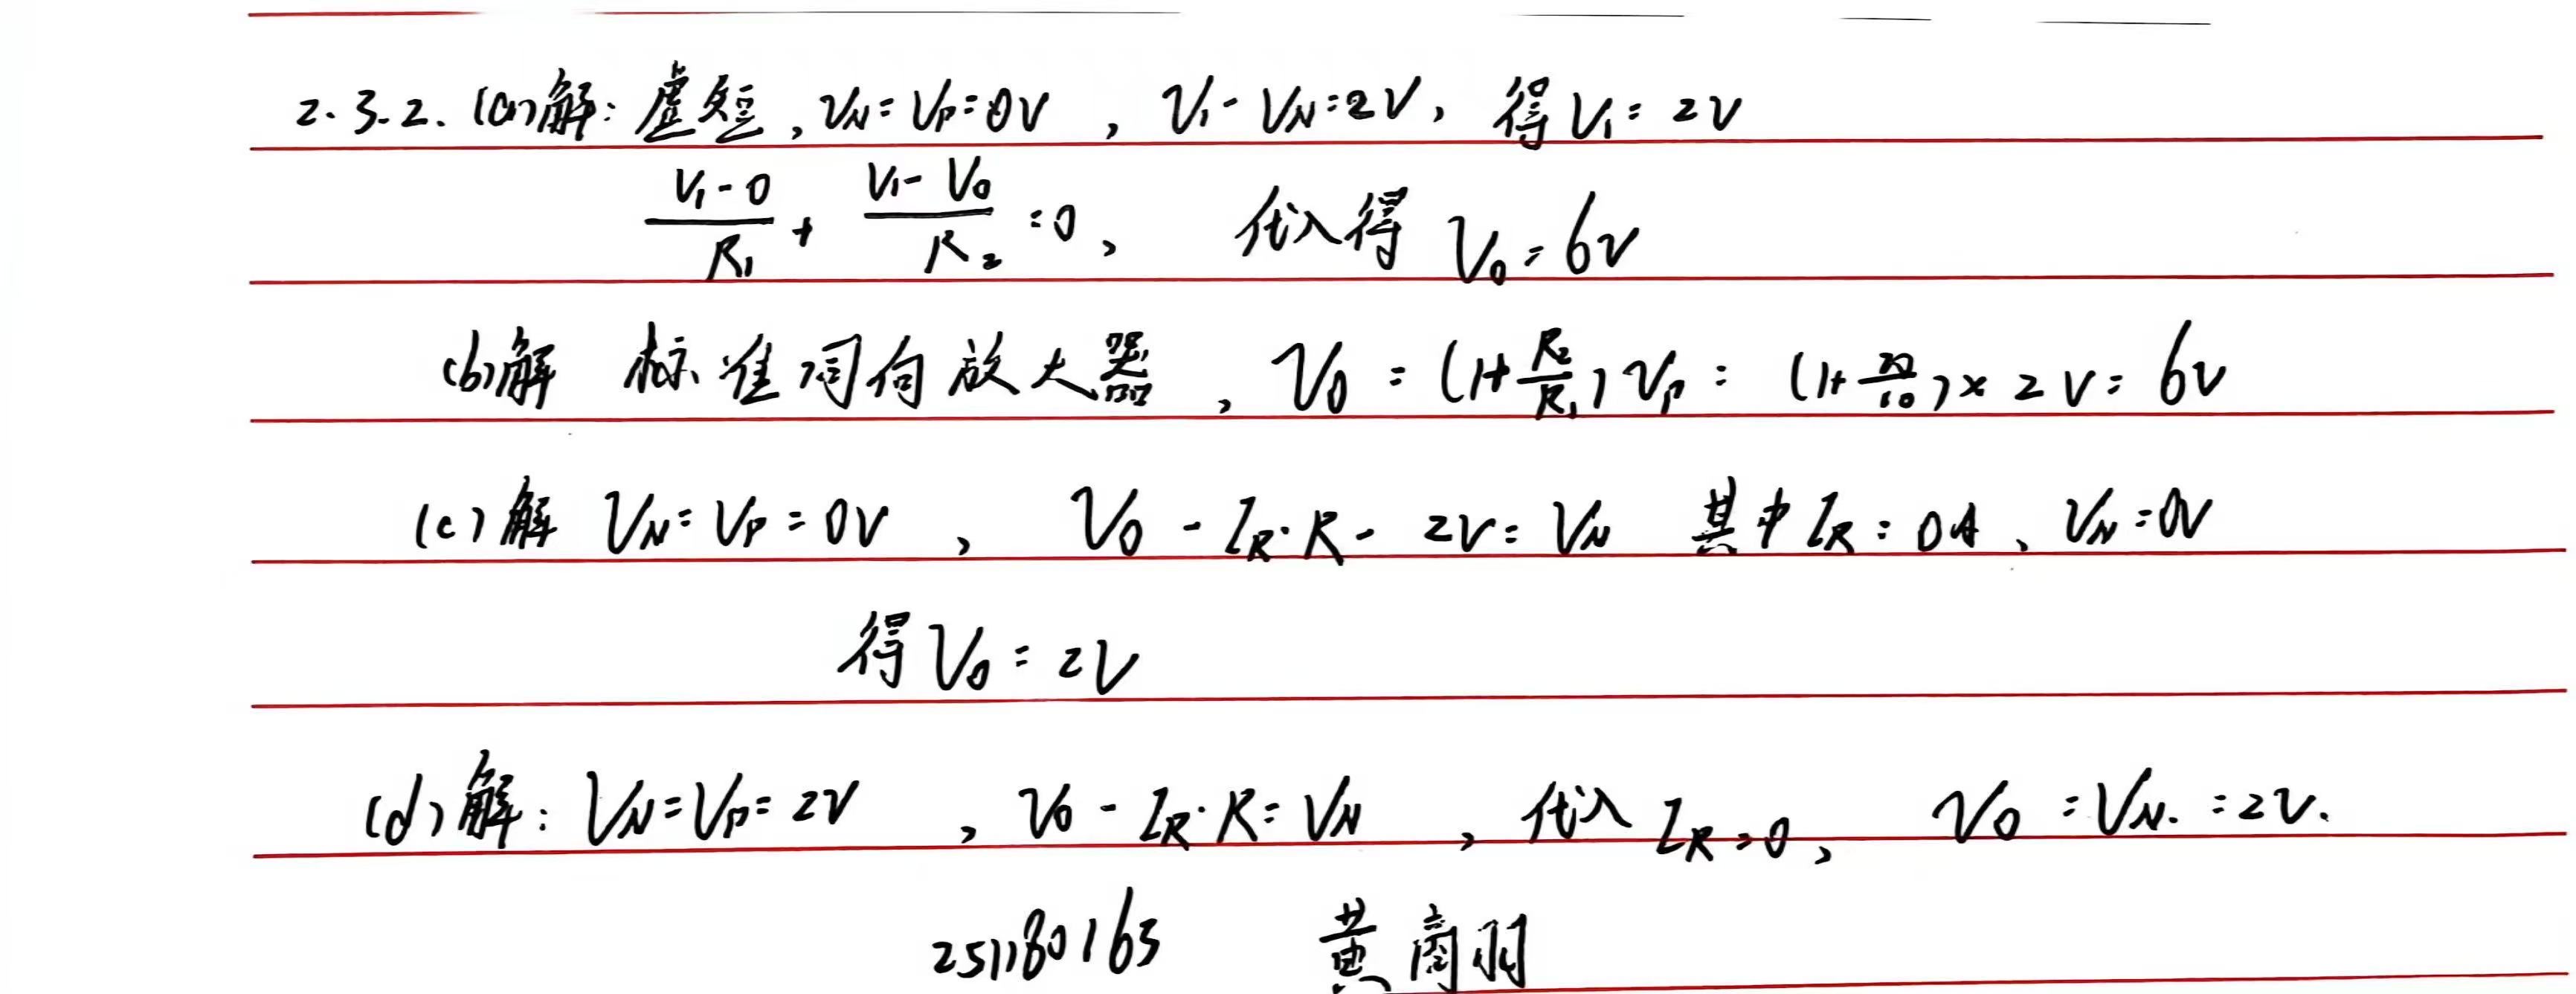 2.3.2. (a)解: 虚短, VN=VP=0V, V1-VN=2V, 得V1=2V
(V1-0)/R1 + (V1-V0)/R2 =0, 代入得 V0=6V
(b)解 标准同向放大器, V0=(1+R2/R1)VP=(1+20/10)×2V=6V
(c)解 VN=VP=0V, V0-IR·R-2V=VN 其中IR=0A、VN=0V
得V0=2V
(d)解: VN=VP=2V, V0-IR·R=VN, 代入IR=0, V0=VN.=2V.
251180163 黄 羽